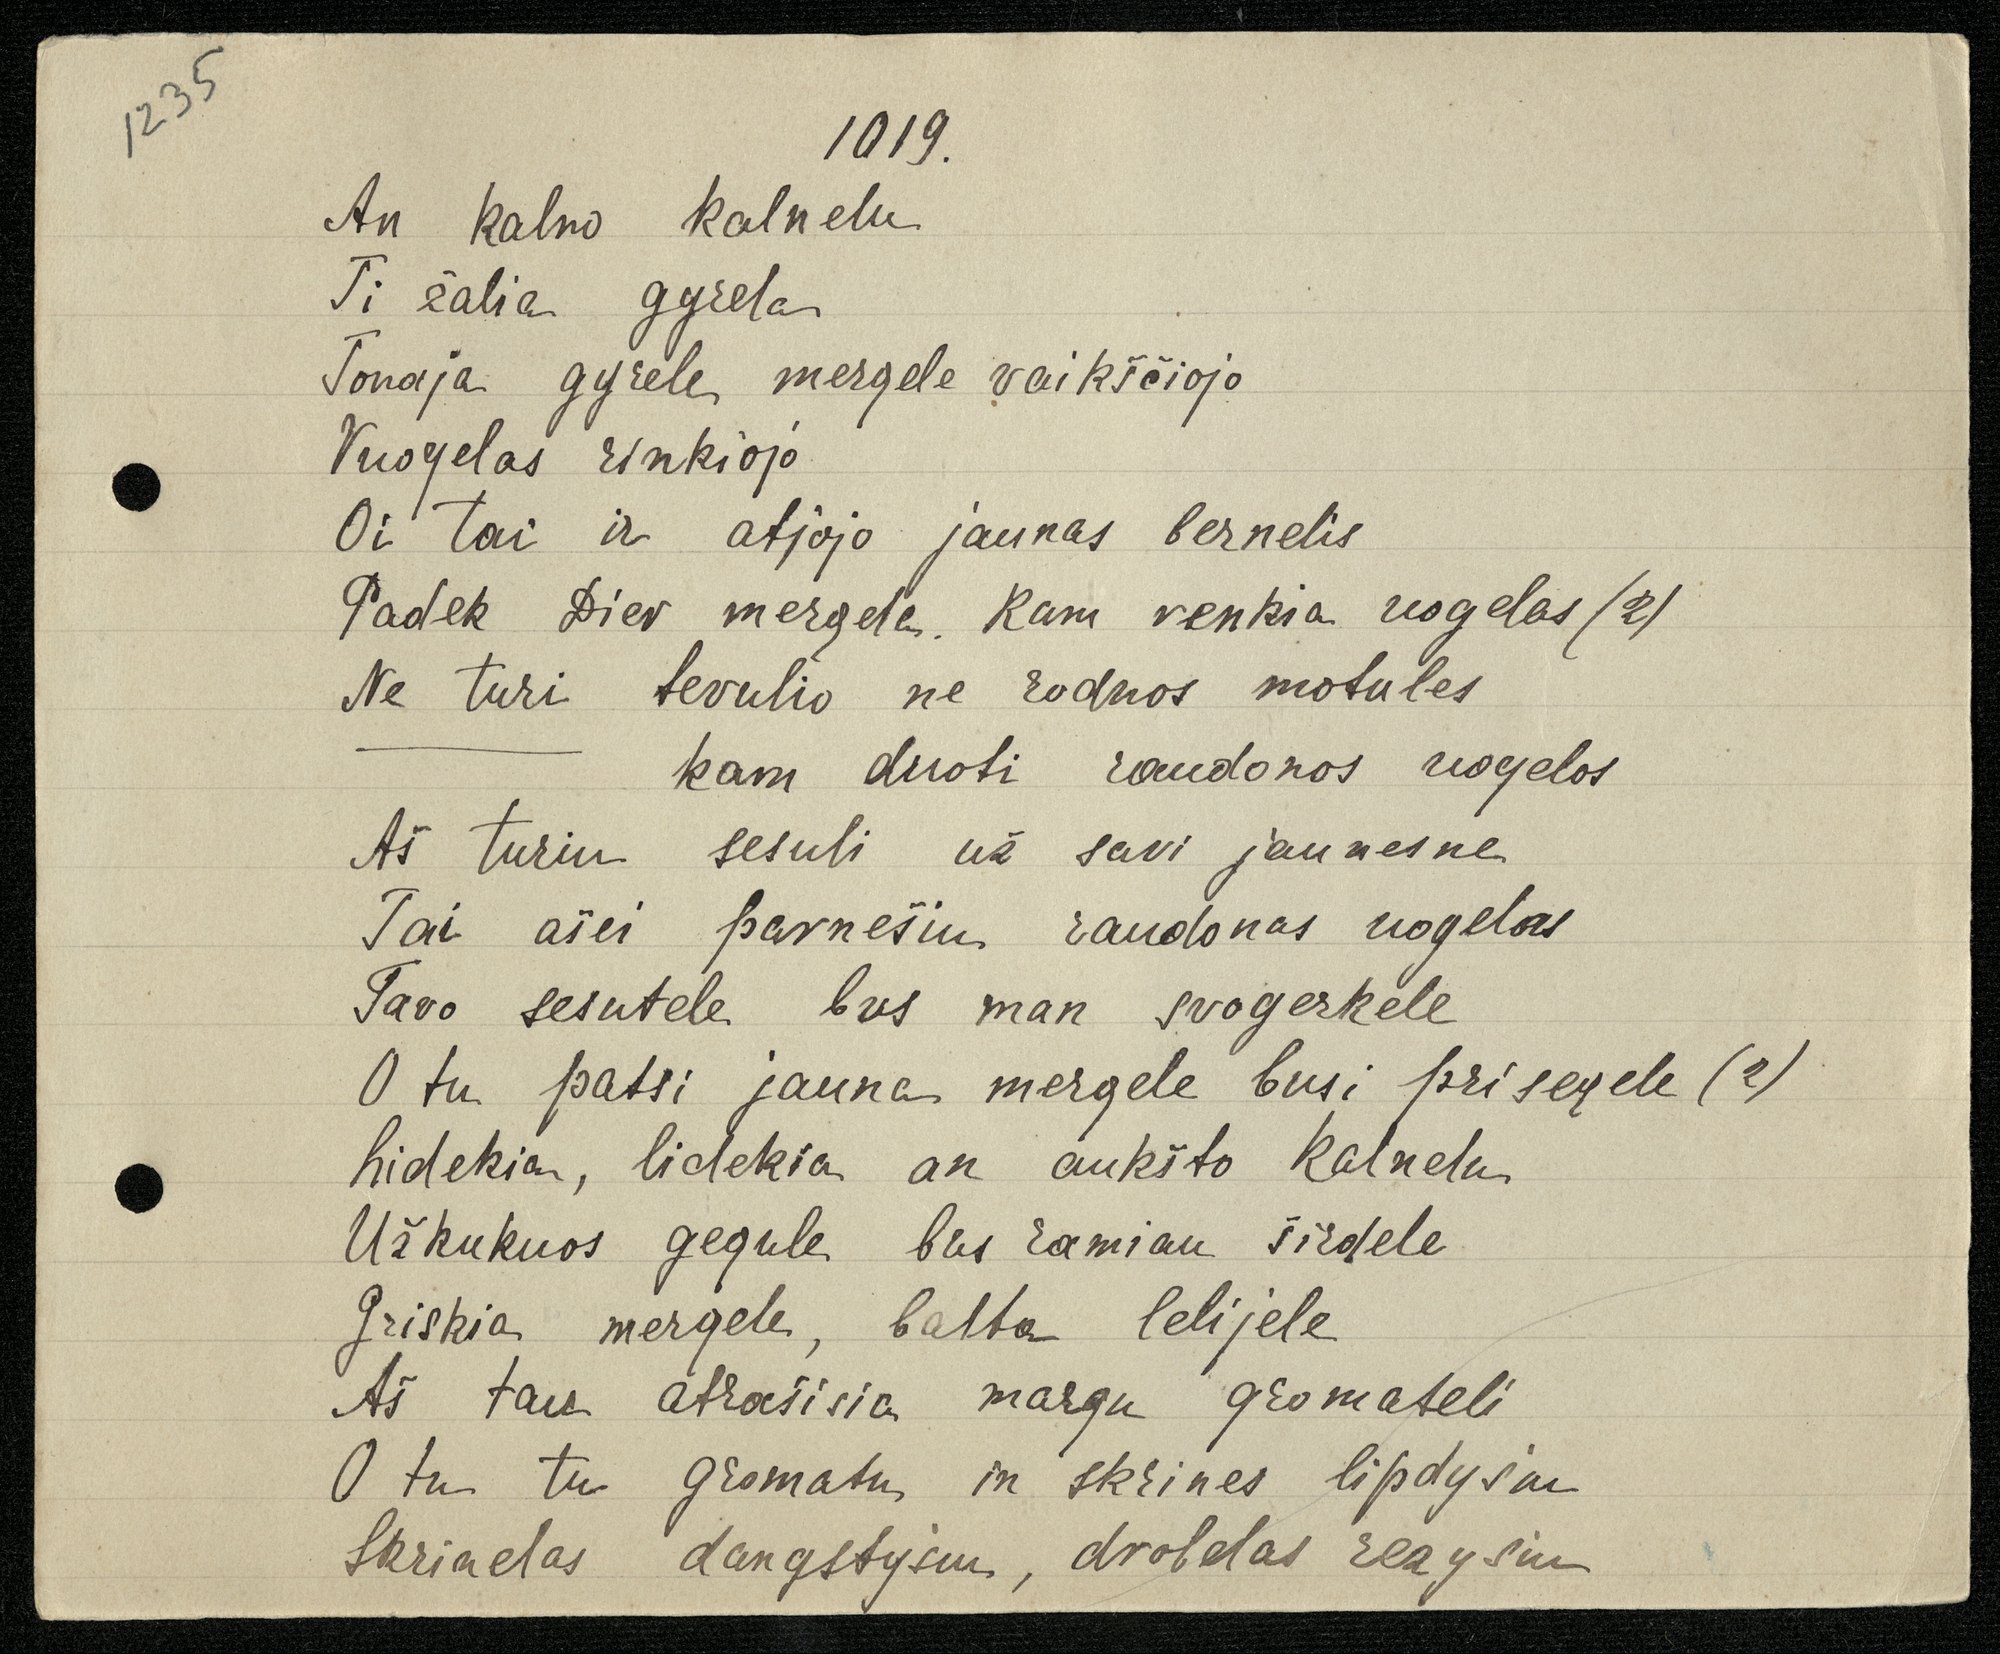 1235
1019.
An kalno kalnelu
Ti žalia gyrela
Tonaja gyrele mergele vaikščiojo
Vuogelas rinkiojo
Oi tai ir atjojo jaunas bernelis
Padek Diev mergela. Kam renkia uogelas (2)
Ne turi tevulio ne rodnos motules
kam duoti raudonos uogelos
Aš turiu sesuli už savi jaunesne
Tai ašei parnešiu raudonas uogelas
Tavo sesutele bus man svogerkele
O tu patsi jauna mergele busi prisegele (2)
Lidekia, lidekia an aukšto kalnelu
Užkukuos gegule bus ramiau širdele
Griskia mergele, balta lelijele
Aš tau atrašisia margu gromateli
O tu tu gromatu in skrines lipdysiu
Skrinelas dangstysiu, drobelas rezysiu